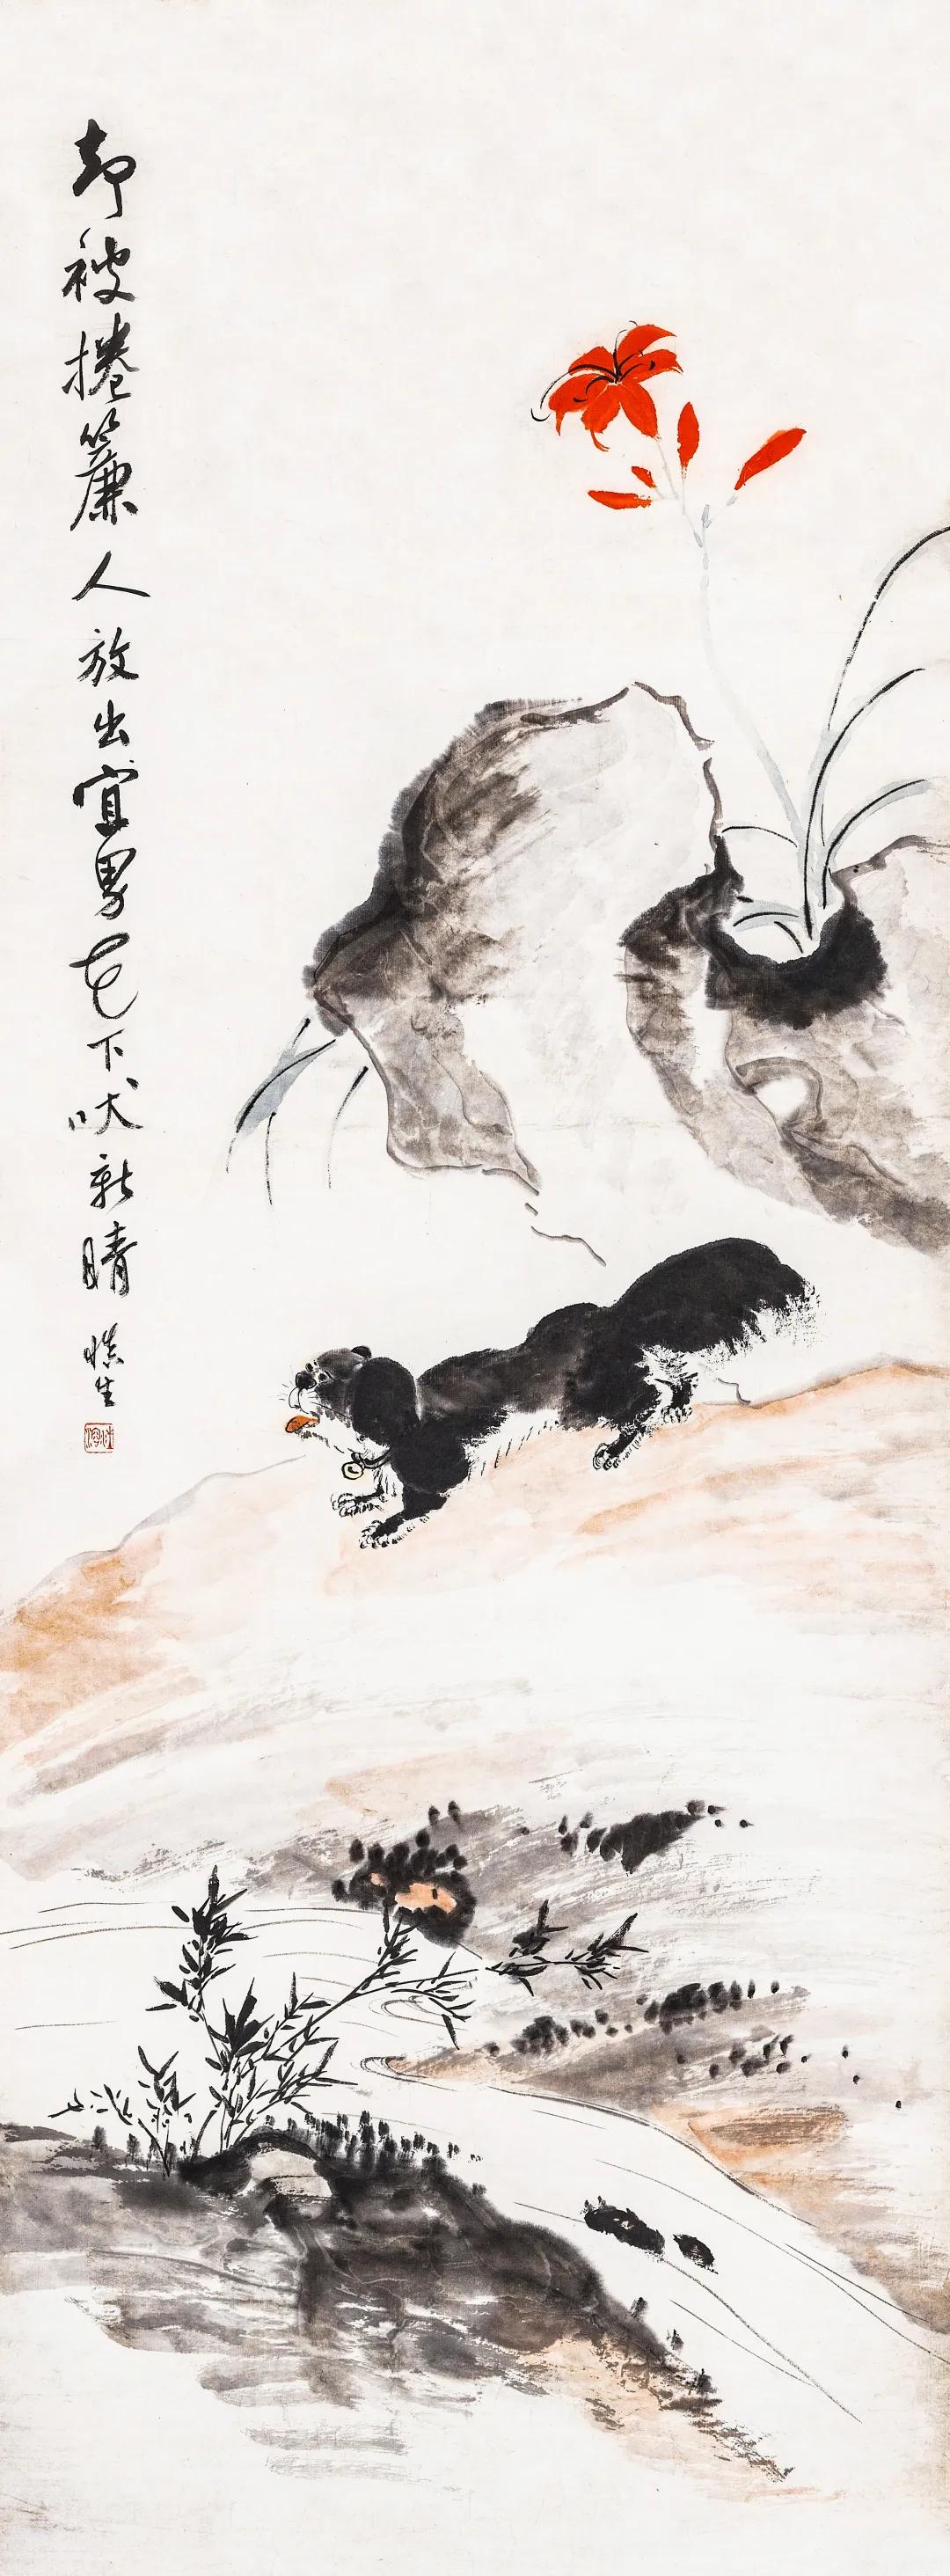 却被捲簾人放出宜男花下吠新晴
慎生